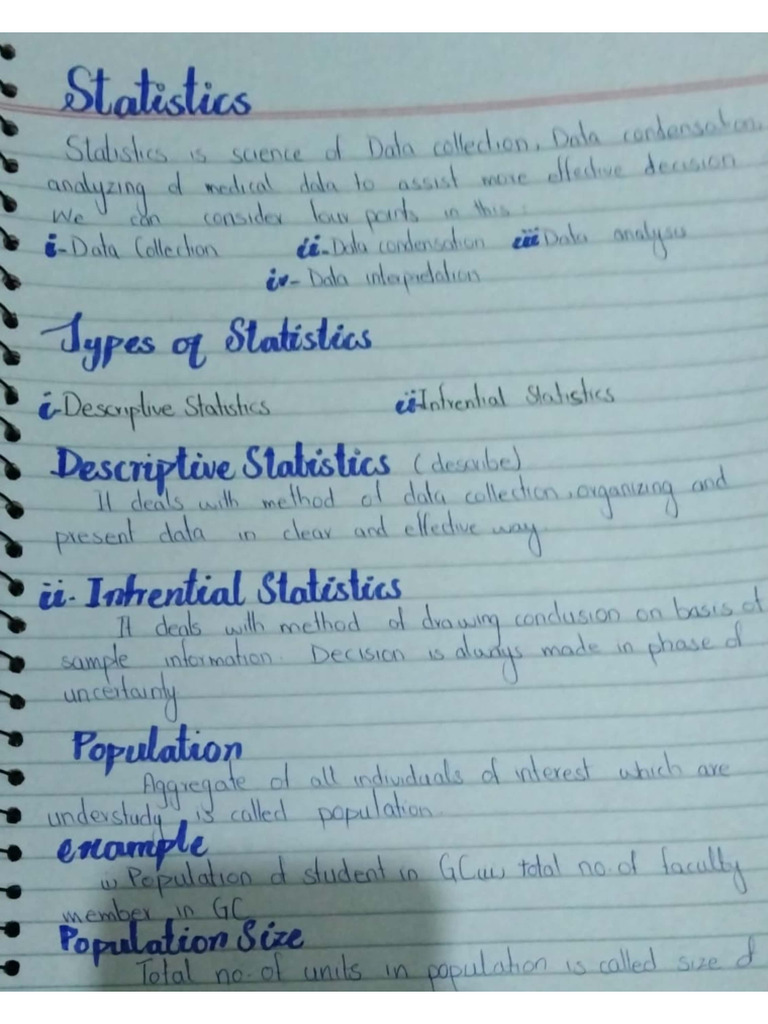 Statistics
Statistics is science of Data collection, Data condensation,
analyzing of medical data to assist more effective decision
We can consider four points in this:
i-Data Collection ii-Data condensation iii Data analysis
iv- Data interpretation
Types of Statistics
i-Descriptive Statistics ii-Infrential Statistics
Descriptive Statistics (describe)
It deals with method of data collection, organizing and
present data in clear and effective way.
ii- Infrential Statistics
It deals with method of drawing conclusion on basis of
sample information. Decision is always made in phase of
uncertainly
Population
Aggregate of all individuals of interest which are
understudy is called population.
example
Population of student in total no. of faculty
member in GC
Population Size
Total no. of units in population is called size of